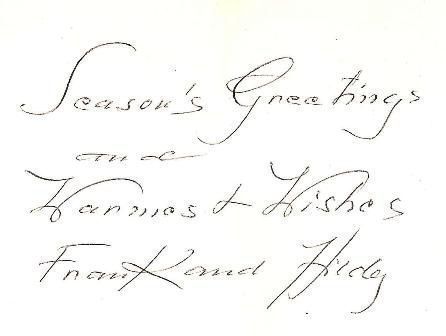 Season's Greetings
and
Warmest Wishes
Frank and Hildy